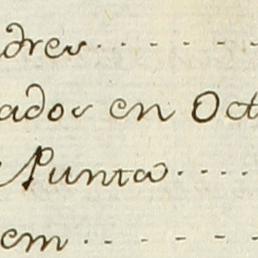 adres
ados en Oct
Punta
em